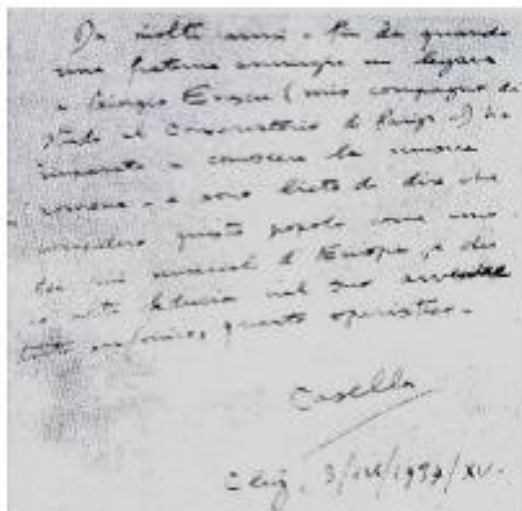 Da molti anni - fin da quando
una fraterna amicizia mi legava
a Giorgio Enescu (mio compagno di
studi al Conservatorio di Parigi -) ho
imparato a conoscere la musica
romena - e sono lieto di dire che
considero questo popolo come uno
dei più musicali d'Europa, e che
ho molta fiducia nel suo avvenire
tanto sinfonico, quanto operistico.
Casella
Cluj, 3/ /1937/XV.